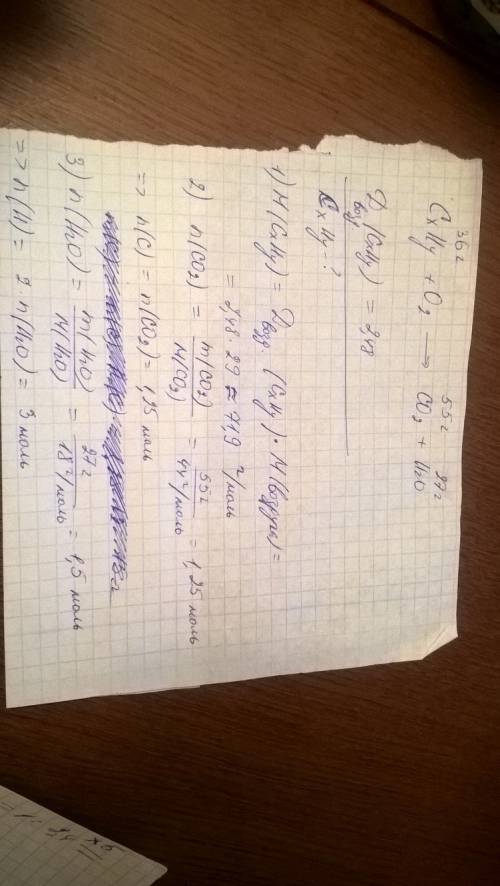 36 г 55 г 27 г
CxHy + O2 → CO2 + H2O
Dвозд (CxHy) = 2,48
CxHy - ?
1) M(CxHy) = Dвозд. (CxHy) · M(воздуха) =
= 2,48 · 29 ≈ 71,9 г/моль
2) n(CO2) = m(CO2)/M(CO2) = 55 г/44 г/моль = 1,25 моль
=> n(C) = n(CO2) = 1,25 моль
3) n(H2O) = m(H2O)/M(H2O) = 27 г/18 г/моль = 1,5 моль
=> n(H) = 2·n(H2O) = 3 моль